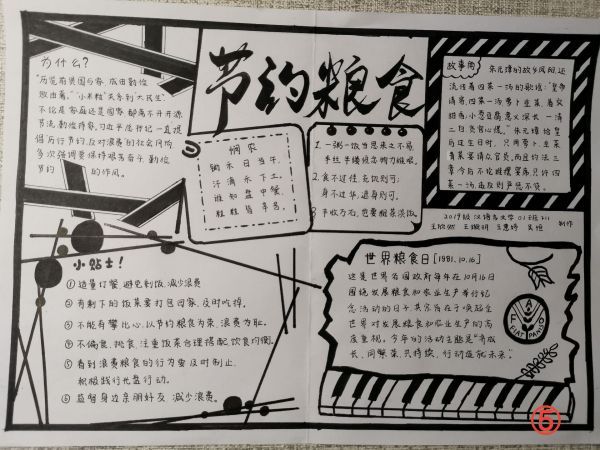 节约粮食
为什么?
"历览前贤国与家,成由勤俭
败由奢。""小米粒"关系到"大民生",
不论是家庭还是国家,都离不开开源
节流,勤俭持家。习近平总书记一直提
倡厉行节约,反对浪费的社会风尚,
多次强调要保持艰苦奋斗,勤俭
节约的作风。
悯农
锄禾日当午,
汗滴禾下土。
谁知盘中餐,
粒粒皆辛苦。
1.一粥一饭当思来之不易
半丝半缕恒念物力维艰。
2.食不过佳,无饥则可;
身不过华,遮身则可。
3.丰收万石,也要粗茶淡饭。
故事角
朱元璋的故乡凤阳,还
流传着四菜一汤的歌谣:"皇帝
请客,四菜一汤,萝卜韭菜,着实
甜香;小葱豆腐,意义深长,一清
二白,贪官心慌。"朱元璋给皇
后过生日时,只用萝卜、韭菜
青菜宴请众官员,而且约法三
章:今后不论谁摆宴席,只许四
菜一汤,违反则严惩不贷。
2019级汉语言文学01班211
制作
小贴士!
①适量订餐,避免剩饭,减少浪费
②有剩下的饭菜要打包回家,及时吃掉。
③不能有攀比心,以节约粮食为荣、浪费为耻。
④不偏食、挑食,注重饭菜合理搭配,饮食均衡。
⑤看到浪费粮食的行为要及时制止,
积极践行光盘行动。
⑥监督身边亲朋好友,减少浪费。
世界粮食日[1981.10.16]
这是世界各国政府每年在10月16日
围绕发展粮食和农业生产举行纪
念活动的日子,其宗旨在于唤起全
世界对发展粮食和农业生产的高
度重视。今年的活动主题是"齐成
长、同繁荣、共持续,行动造就未来"。
FAO
FIAT PANIS
⑥